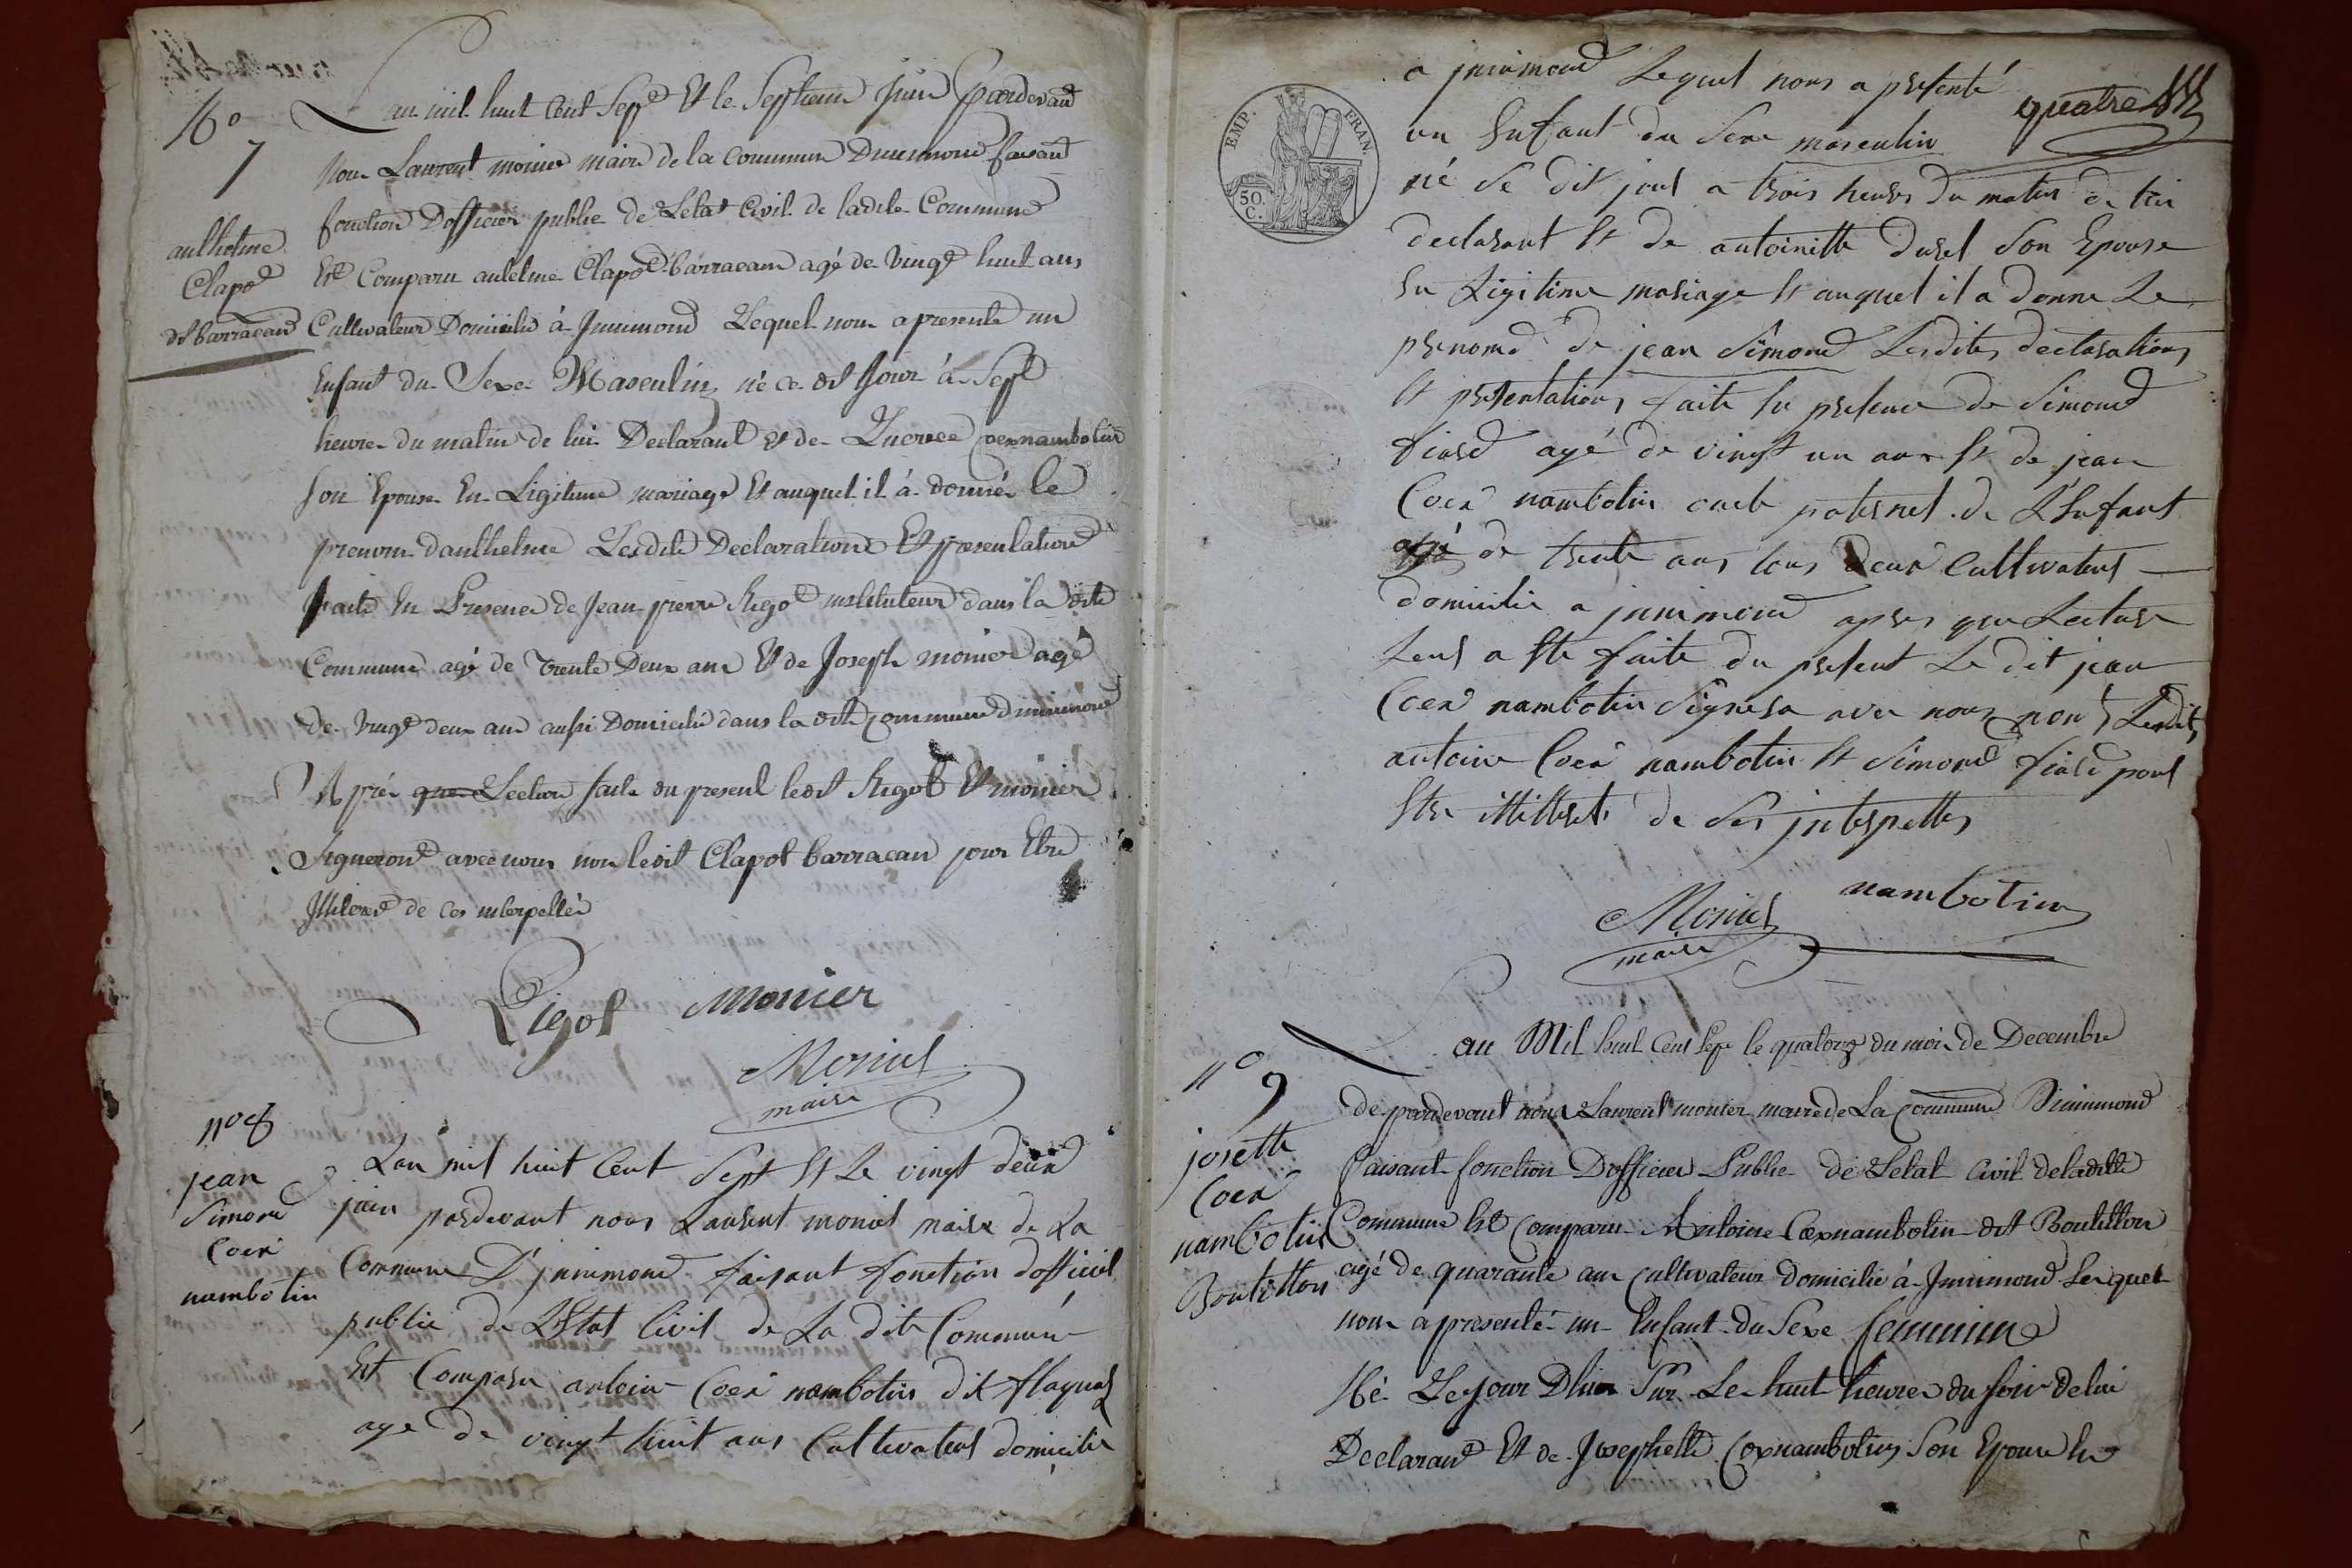 No
7
aulhelme
Clapod
dt barracand
Lan mil huit Cent Sept Et le Septieme juin pardevant
Nous Laurent monier maire de la commune Dinnimond faisant
fonction Dofficier public de Letat Civil de ladite Commune
Est Comparu aulelme Clapod barracam agé de vingt huit ans
Cultivateur Domicilié à Jnnimond Lequel nous a presenté un
Enfant du Sexe Masculin né ce dit Jour à Sept
heure du matin de lui Declarant et de Lucrece Coexnambotin
son Epouse En Ligitime mariage Et auquel il à donné le
prenom daulhelme Lesdite Declarations Et presentations
faite En Presence de Jean pierre Rigod instituteur dans la dite
Commune agé de trente Deux ans Et de Joseph monier agé
de vingt deux ans aussi Domicilié dans la dite commune dinnimond
Aprés que Lecture faite du present ledit Rigod Et monier
Signeront avec nous non ledit Clapot barracan pour Etre
Jlliteré de ces interpellés
Rigot monier
Monier
maire
no 8
jean
Simond
Coex
nambotin
Lan mil huit Cent Sept Et Le vingt deux
juin pardevant nous Laurent monier maire de La
Commune D'jnnimond faisant fonction dofficiel
public de L'Etat Civil de La dite Commune
Est Comparu antoine Coex nambotin dit flaquas
agé de vingt huit ans Cultivateur domicilié
quatre
EMP. FRAN.
50.
C.
a jnnimond Lequel nous a presenté
un Enfant du Sexe masculin
né Se dit jour a trois heures du matin de lui
declarant Et de antoinette Durel Son Epouse
En Ligitime mariage Et auquel il a donne Le
prenomd de jean Simond Lesdites declarations
Et presentations faite En presence de Simond
Fiard agé de vingt un ans Et de jean
Coex nambotin oncle paternel de L'Enfant
agé de trente ans tous Deux Cultivateurs
domicilié a jnnimond apres que Lecture
Leur a Ete faite du present Le dit jean
Coex nambotin Signera avec nous non Lesdits
antoine Coex nambotin Et Simond Fiard pour
Etre illitteré de Ses jnterpelles
Monier nambotin
maire
no 9
josette
Coex
nambotin
Boutillon
Lan Mil huit Cent Sept le quatorze du mois de Decembre
de pardevant nous Laurent monier maire de La commune Dinnimond
faisant fonction Dofficier Public de Letat Civil de ladite
Commune Est Comparu Antoine Coexnambotin dit Boutillon
agé de quarante ans Cultivateur domicilié à Jnnimond Lequel
nous a presenté un Enfant du Sexe feminin
Né Le jour Dhier Sur Le huit heures du soir de lui
Declarand Et de Josephette Coexnambotin Son Epouse En